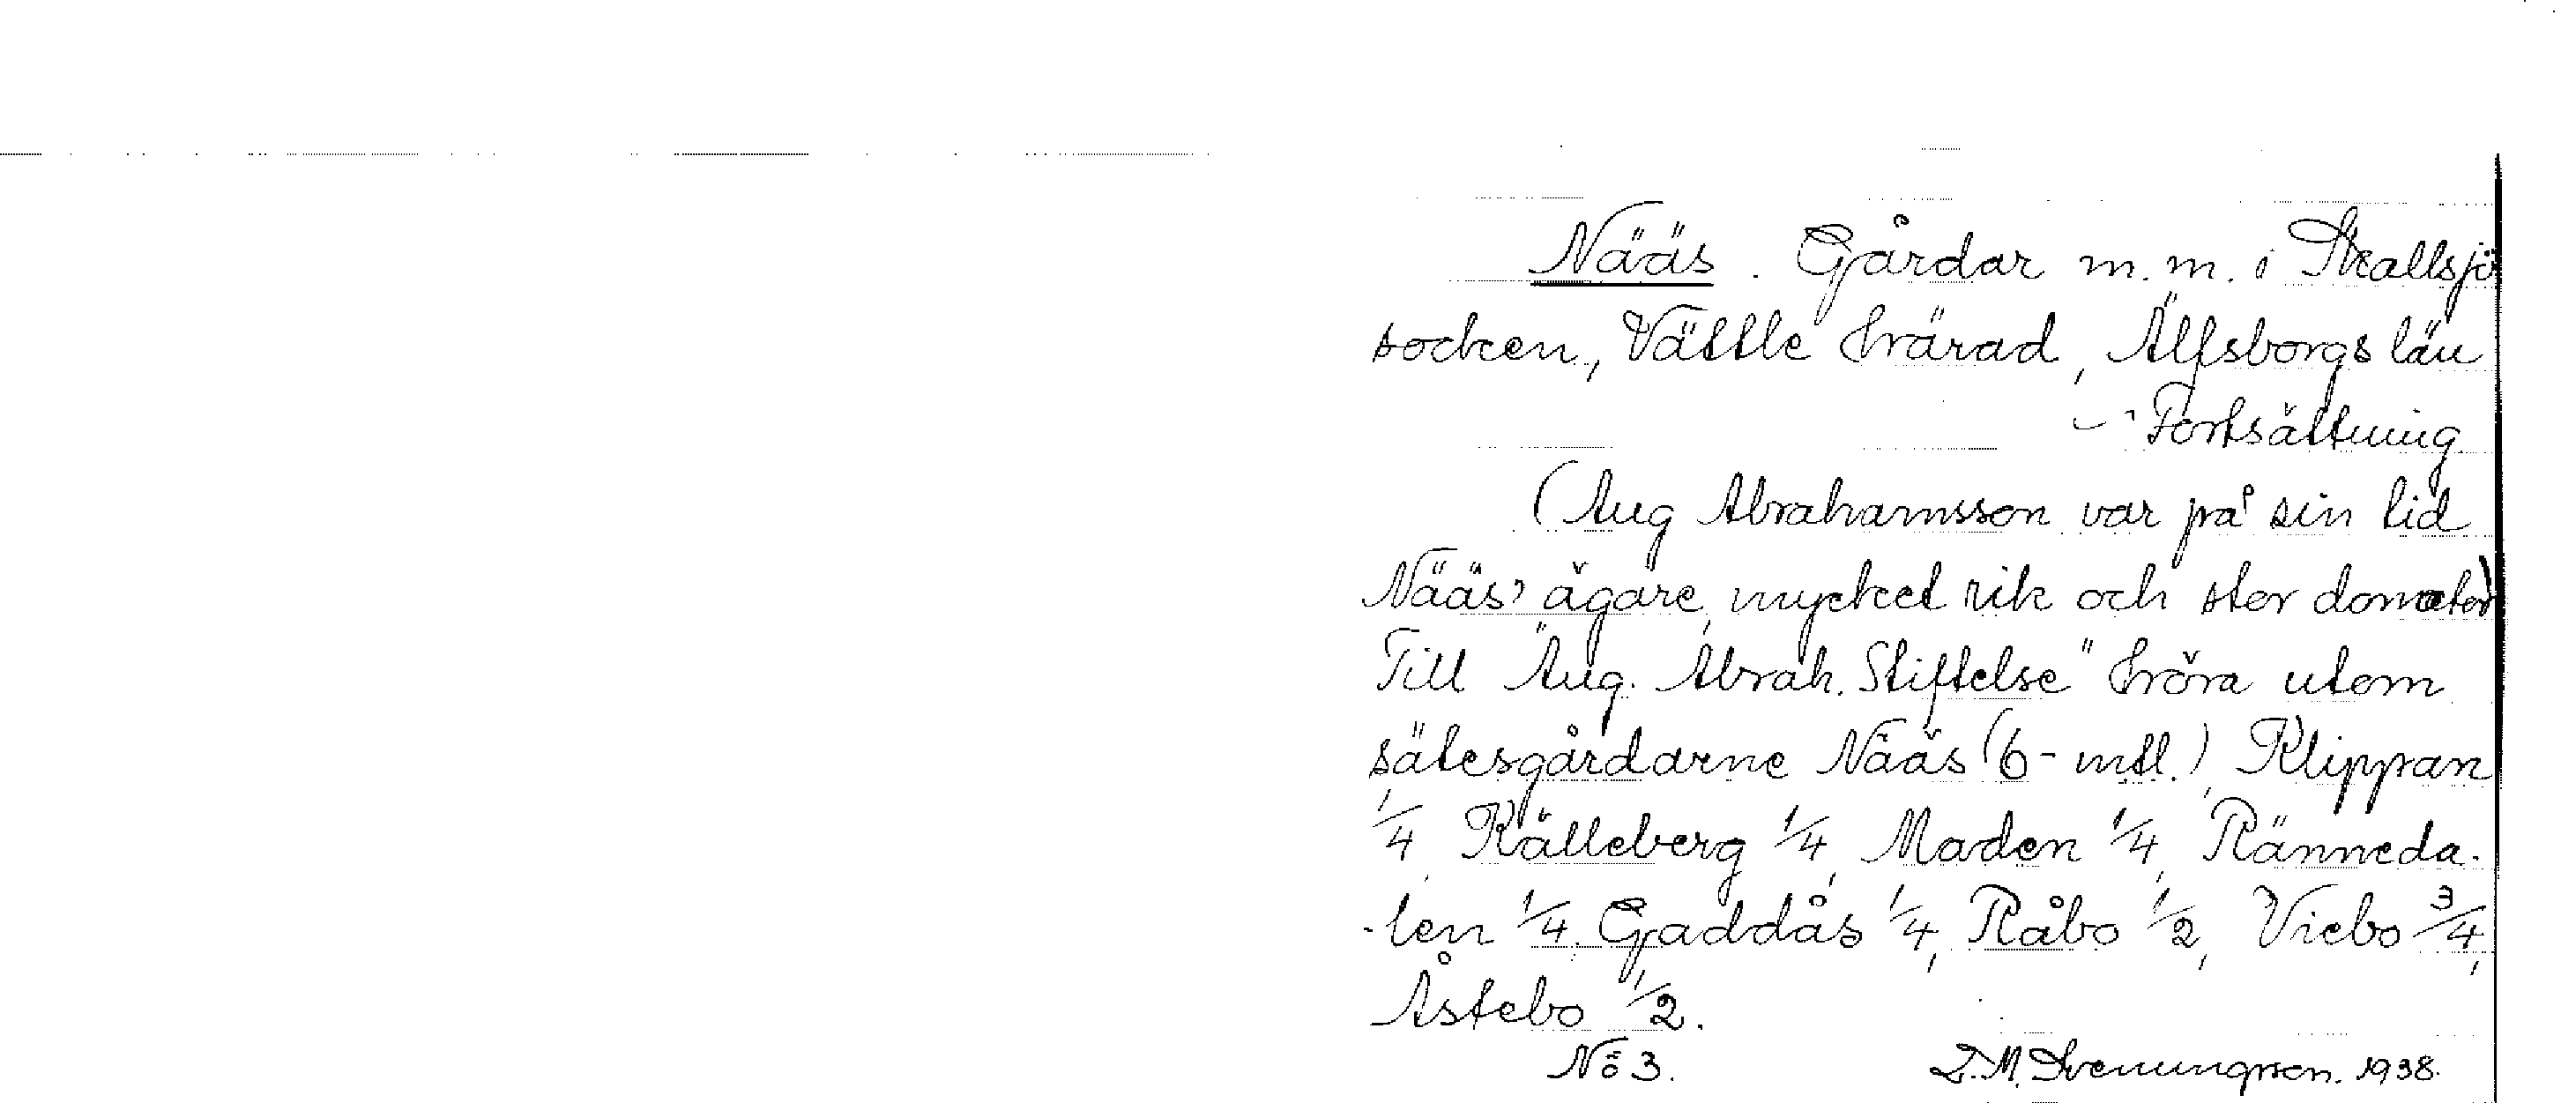 Nääs. Gårdar m.m. i Skallsjö
socken, Vättle härad, Älfsborgs län
- Fortsättning
(Aug Abrahamsson var på sin tid
Nääs' ägare, mycket rik och stor donator)
Till "Aug. Abrah. Stiftelse" höra utom
sätesgårdarne Nääs (6 - mtl.), Klippan
1/4, Källeberg 1/4, Maden 1/4, Ränneda-
-len 1/4. Gaddås 1/4, Råbo 1/2, Viebo 3/4,
Åstebo 1/2.
No 3. D.M. Svenungsson. 1938.